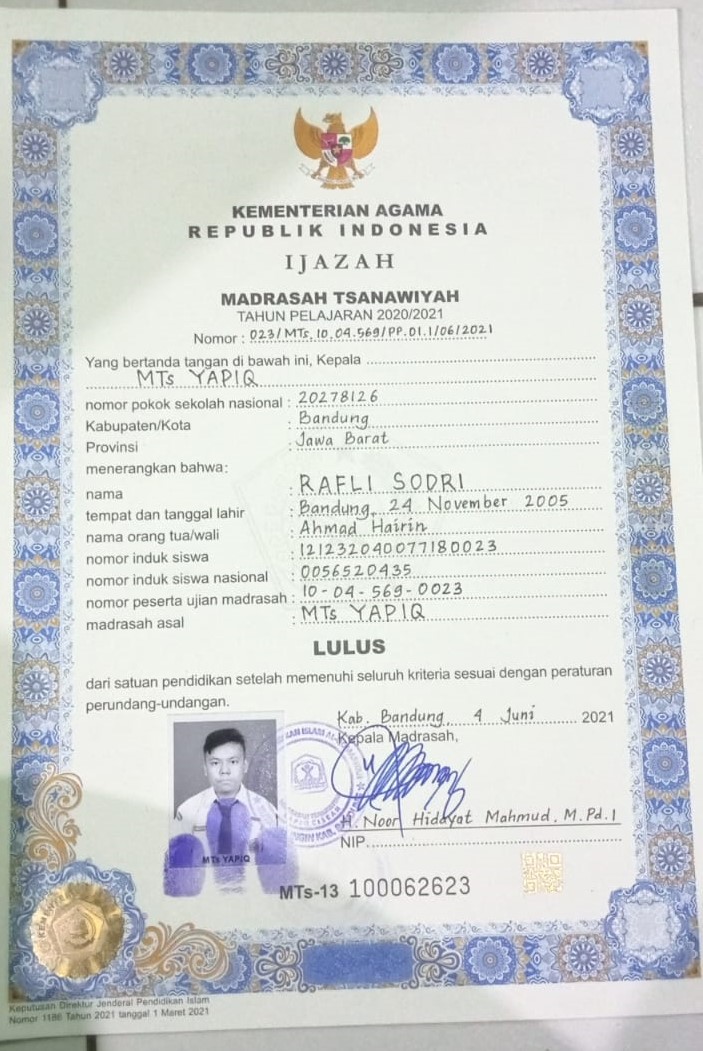 KEMENTERIAN AGAMA
REPUBLIK INDONESIA
IJAZAH
MADRASAH TSANAWIYAH
TAHUN PELAJARAN 2020/2021
Nomor : 023/MTs.10.04.569/PP.01.1/06/2021
Yang bertanda tangan di bawah ini, Kepala
MTs YAPIQ
nomor pokok sekolah nasional : 20278126
Kabupaten/Kota : Bandung
Provinsi : Jawa Barat
menerangkan bahwa:
nama : RAFLI SODRI
tempat dan tanggal lahir : Bandung, 24 November 2005
nama orang tua/wali : Ahmad Hairin
nomor induk siswa : 121232040077180023
nomor induk siswa nasional : 0056520435
nomor peserta ujian madrasah : 10-04-569-0023
madrasah asal : MTs YAPIQ
LULUS
dari satuan pendidikan setelah memenuhi seluruh kriteria sesuai dengan peraturan
perundang-undangan.
Kab. Bandung, 4 Juni 2021
Kepala Madrasah,
H. Noor Hidayat Mahmud, M.Pd.I
NIP.
MTs YAPIQ
MTs-13 100062623
Keputusan Direktur Jenderal Pendidikan Islam
Nomor 1186 Tahun 2021 tanggal 1 Maret 2021